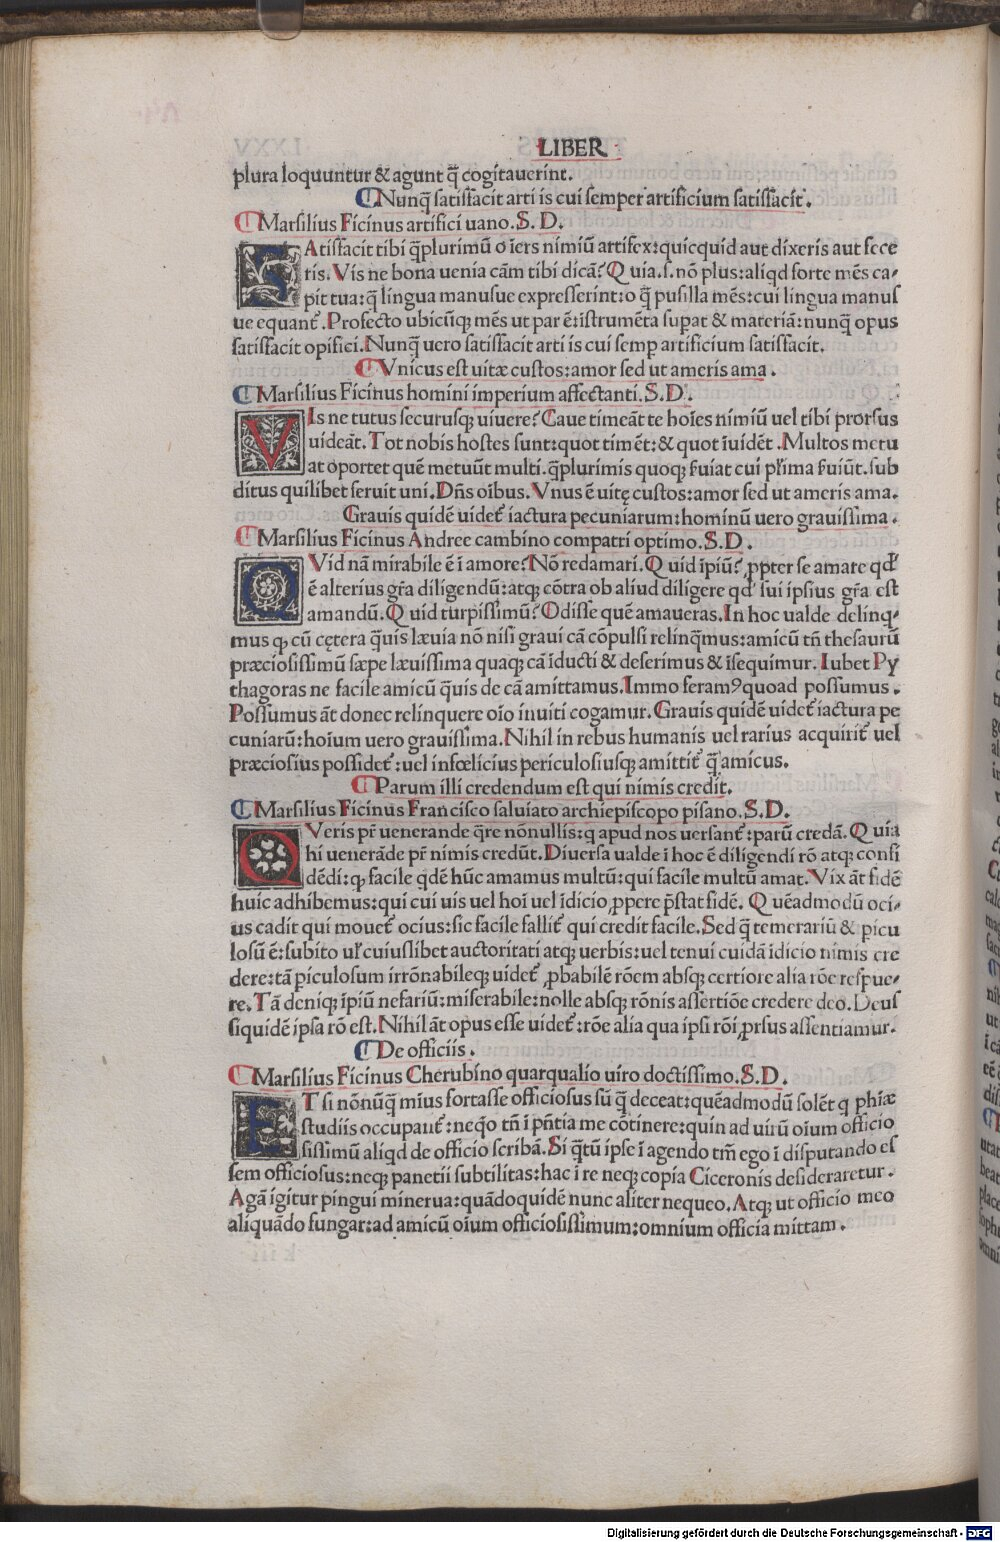 LIBER
plura loquuntur & agunt q̃ cogitauerint.
Nunq̃ satisfacit arti is cui semper artificium satisfacit.
Marsilius Ficinus artifici uano. S. D.
SAtisfacit tibi q̃plurimũ o iers nimiũ artifex: quicquid aut dixeris aut fece
ris. Vis ne bona uenia cãm tibi dicã? Quia .s. nõ plus: aliqd forte mẽs ca-
pit tua: q̃ lingua manusue expresserint: o q̃ pusilla mẽs: cui lingua manus
ue equant᷑. Profecto ubicũq; mẽs ut par ẽ: ĩstrumẽta supat & materiã: nunq̃ opus
satisfacit opifici. Nunq̃ uero satisfacit arti is cui semp artificium satisfacit.
Vnicus est uitæ custos: amor sed ut ameris ama.
Marsilius Ficinus homini imperium affectanti. S. D.
VIs ne tutus securusq; uiuere? Caue timeãt te hoĩes nimiũ uel tibi prorsus
uideãt. Tot nobis hostes sunt: quot timẽt: & quot ĩuidẽt. Multos metu
at oportet quẽ metuũt multi. q̃plurimis quoq; ẜuiat cui pl̃rima ẜuiũt. sub
ditus quilibet seruit uni. Dñs oĩbus. Vnus ẽ uitę custos: amor sed ut ameris ama.
Grauis quidẽ uidet᷑ iactura pecuniarum: hominũ uero grauissima.
Marsilius Ficinus Andree cambino compatri optimo. S. D.
QVid nã mirabile ẽ ĩ amore? Nõ redamari. Quid ĩpiũ? ꝓpter se amare qd᷑
ẽ alterius gr̃a diligendũ: atq; cõtra ob aliud diligere qd᷑ sui ipsius gr̃a est
amandũ. Quid turpissimũ? Odisse quẽ amaueras. In hoc ualde delinq-
mus ꝙ cũ cętera q̃uis læuia nõ nisi graui cã cõpulsi relinq̃mus: amicũ tñ thesaurũ
præciosissimũ sæpe læuissima quaq; cã ĩducti & deserimus & ĩsequimur. Iubet Py
thagoras ne facile amicũ q̃uis de cã amittamus. Immo feramꝰ quoad possumus.
Possumus ãt donec relinquere oĩo inuiti cogamur. Grauis quidẽ uidet᷑ iactura pe
cuniarũ: hoĩum uero grauissima. Nihil in rebus humanis uel rarius acquirit᷑ uel
præciosius possidet᷑: uel infœlicius periculosiusq; amittit᷑ q̃ amicus.
Parum illi credendum est qui nimis credit.
Marsilius Ficinus Francisco saluiato archiepiscopo pisano. S. D.
QVeris pr̃ uenerande q̃re nõnullis: q apud nos uersant᷑: parũ credã. Quia
hi uenerãde pr̃ nimis credũt. Diuersa ualde ĩ hoc ẽ diligendi rõ atq; confi
dẽdi: ꝙ facile qdẽ hũc amamus multũ: qui facile multũ amat. Vix ãt fidẽ
huic adhibemus: qui cui uis uel hoĩ uel ĩdicio ꝓpere p̃stat fidẽ. Quẽadmodũ oci-
us cadit qui mouet᷑ ocius: sic facile fallit᷑ qui credit facile. Sed q̃ temerariũ & picu
losũ ẽ: subito ul᷑ cuiuslibet auctoritati atq; uerbis: uel tenui cuidã ĩdicio nimis cre
dere: tã piculosum irrõnabileq; uidet᷑ ꝓbabilẽ rõem absq; certiore alia rõe respue-
re. Tã deniq; ĩpiũ nefariũ: miserabile: nolle absq; rõnis assertiõe credere deo. Deus
siquidẽ ipsa rõ est. Nihil ãt opus esse uidet᷑: rõe alia qua ipsi rõi ꝓrsus assentiamur.
De officiis.
Marsilius Ficinus Cherubino quarqualio uiro doctissimo. S. D.
ET si nõnũq̃ mius fortasse officiosus sũ q̃ deceat: quẽadmodũ solẽt q phiæ
studiis occupant᷑: neq̃o tñ ĩ pñtia me cõtinere: quin ad uirũ oĩum officio
sissimũ aliqd de officio scribã. Si q̃tũ ipse ĩ agendo tm̃ ego ĩ disputando es
sem officiosus: neq; panetii subtilitas: hac ĩ re neq; copia Ciceronis desideraretur.
Agã igitur pingui minerua: quãdoquidẽ nunc aliter nequeo. Atq; ut officio meo
aliquãdo fungar: ad amicũ oĩum officiosissimum: omnium officia mittam.
Digitalisierung gefördert durch die Deutsche Forschungsgemeinschaft - DFG